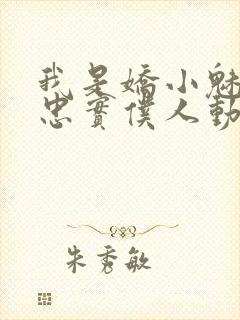 我是嬌小魅
忠實僕人動
朱秀敏